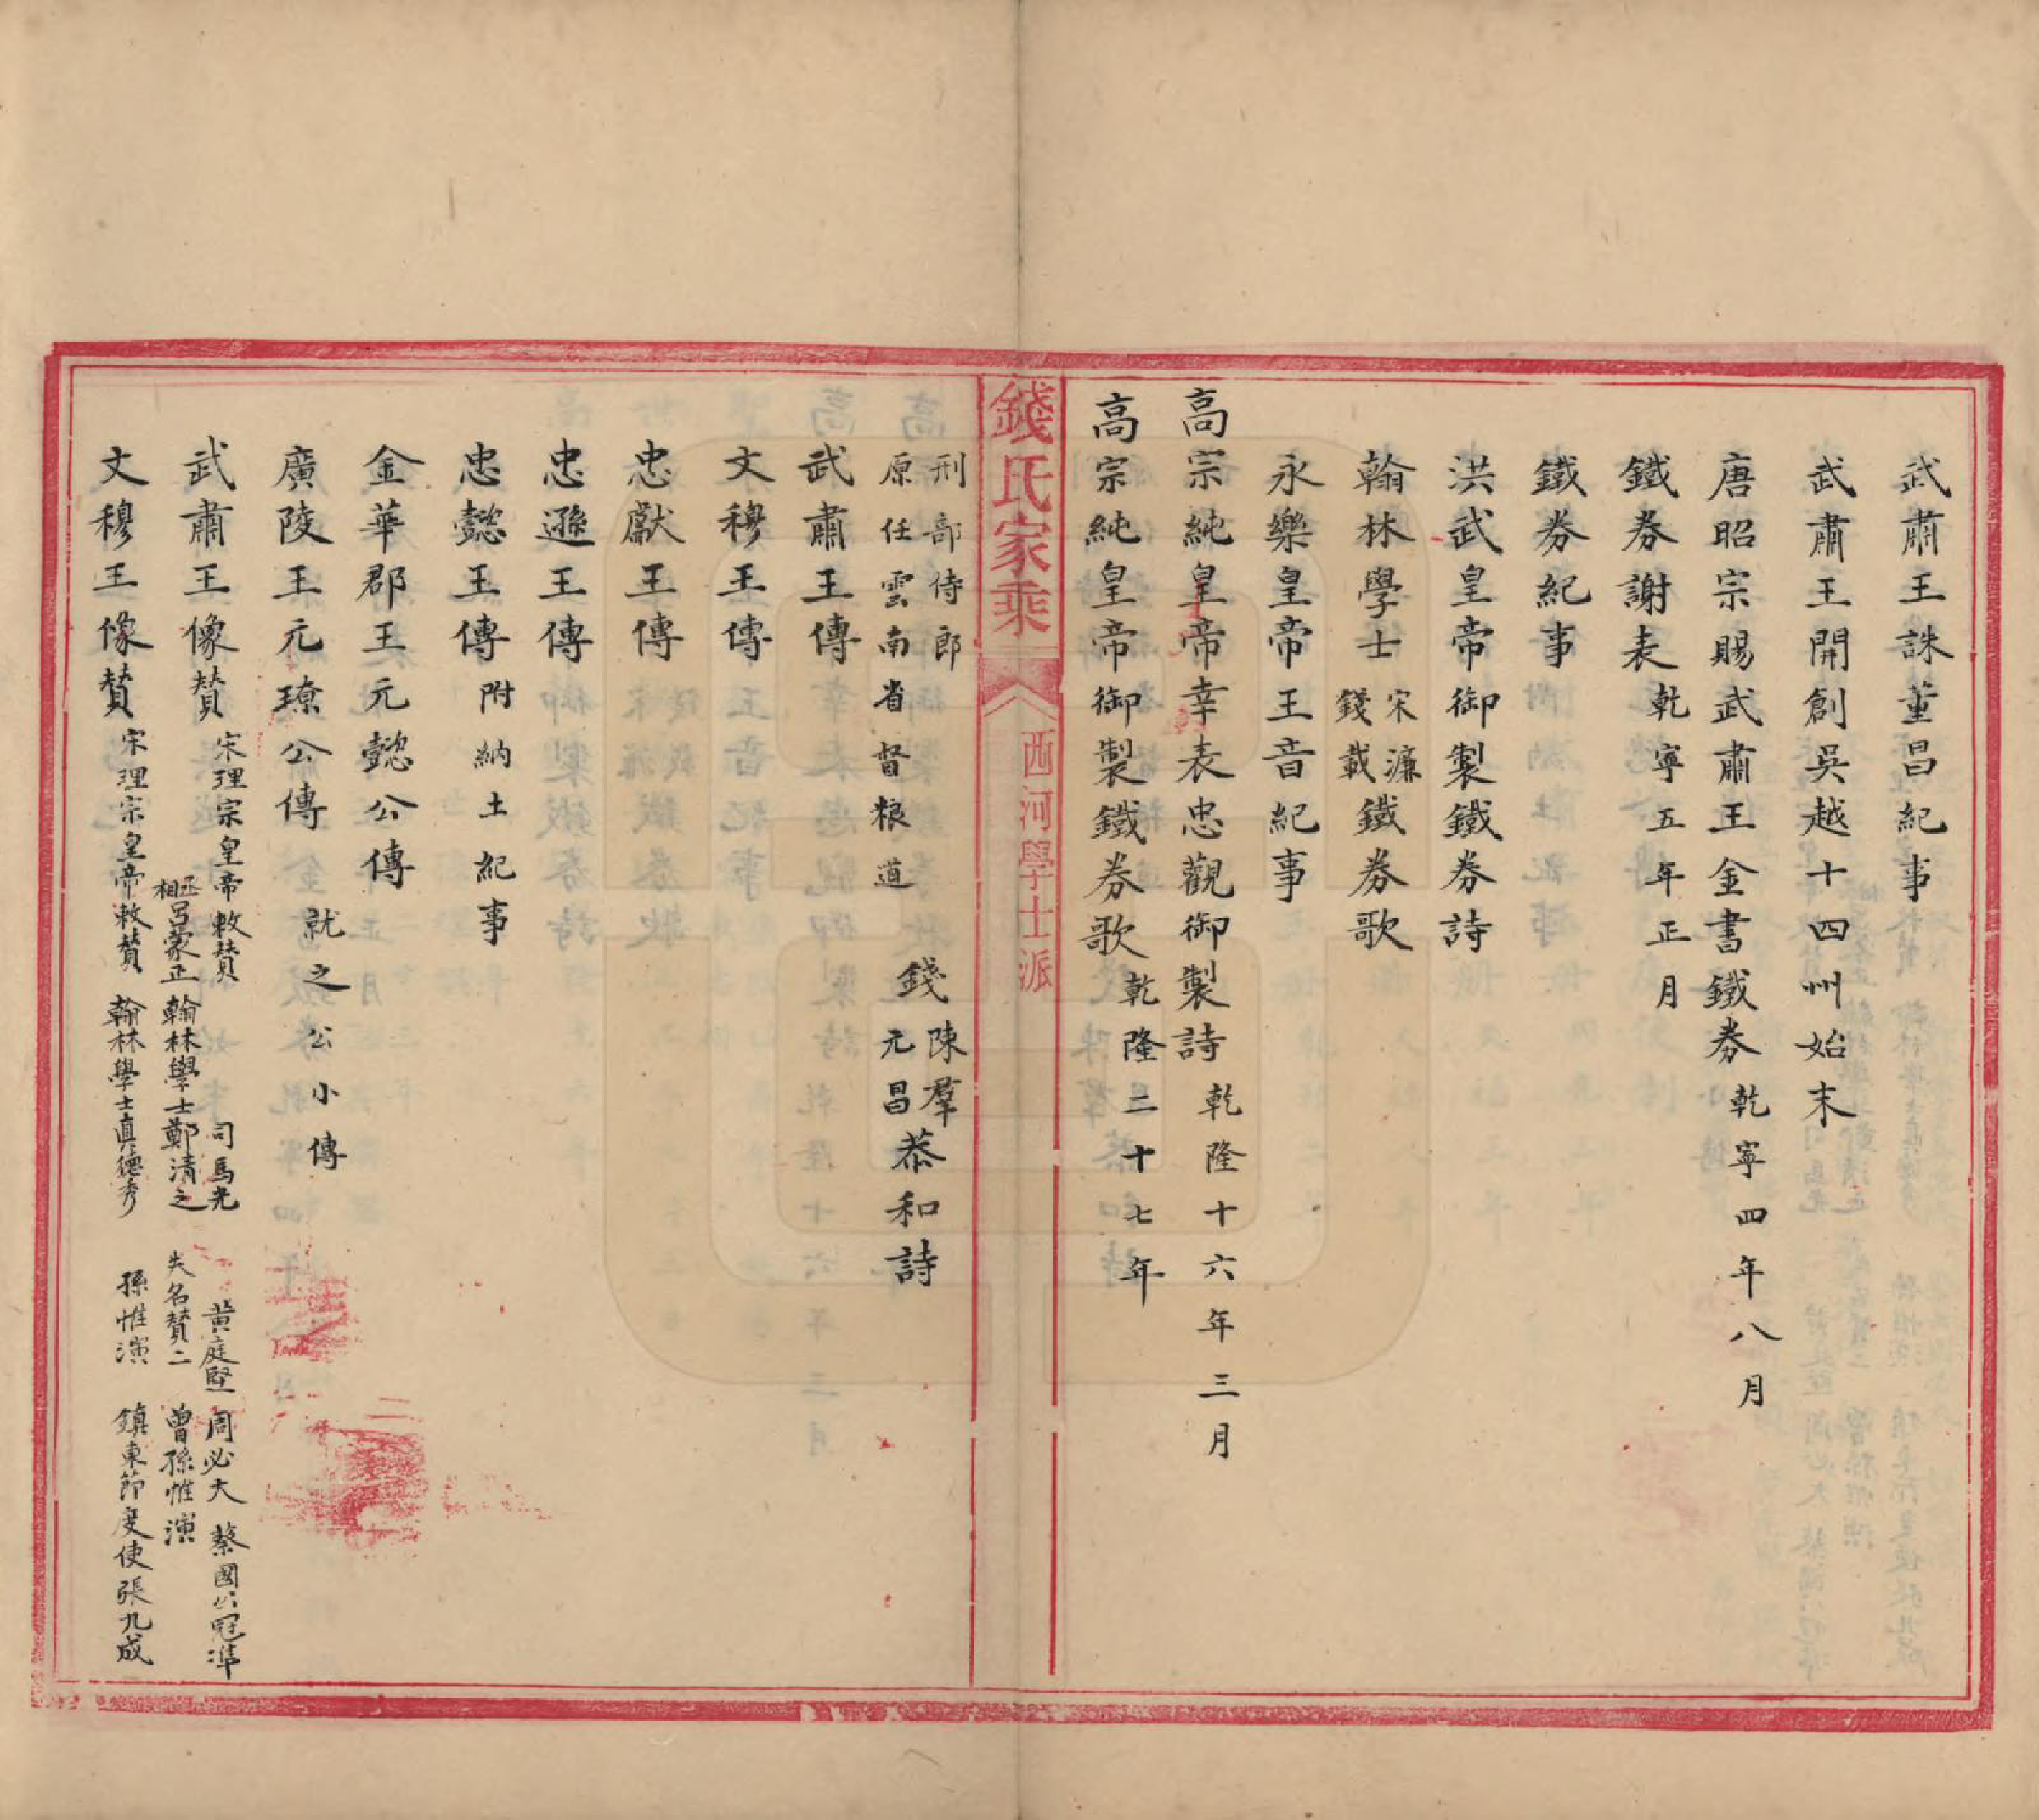 武肅王誅董昌紀事
武肅王開創吳越十四州始末
唐昭宗賜武肅王金書鐵券乾寧四年八月
鐵券謝表乾寧五年正月
鐵券紀事
洪武皇帝御製鐵券詩
翰林學士宋濂錢載鐵券歌
永樂皇帝王音紀事
高宗純皇帝幸表忠觀御製詩乾隆十六年三月
高宗純皇帝御製鐵券歌乾隆二十七年
錢氏家乘 西河學士派
刑部侍郎 錢陳羣
原任雲南省督粮道 元昌恭和詩
武肅王傳
文穆王傳
忠獻王傳
忠遜王傳
忠懿王傳附納土紀事
金華郡王元懿公傳
就之公小傳
廣陵王元璙公傳
武肅王像贊宋理宗皇帝敕贊 司馬光 黄庭堅 周必大 蔡國公冦準
丞相呂蒙正 翰林學士鄭清之 失名贊二 曾孫惟演
文穆王像贊宋理宗皇帝敕贊 翰林學士真德秀 孫惟演 鎮東節度使張九成